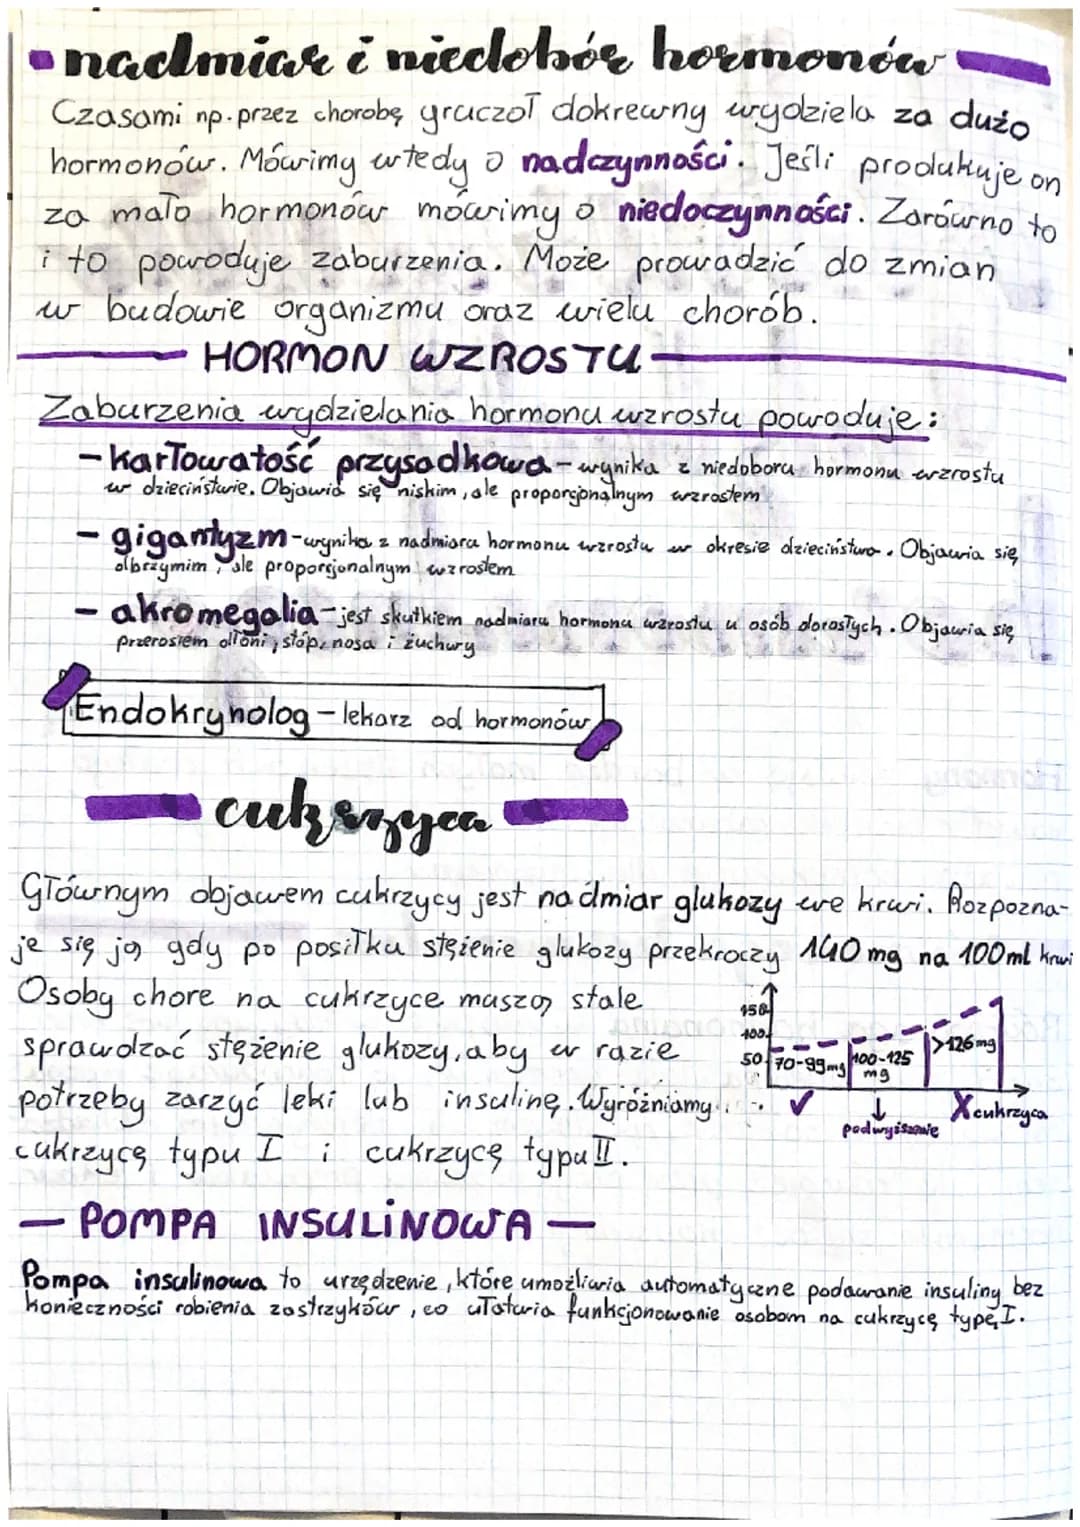 nadmiar i niedobór hormonów
Czasami np. przez chorobę gruczoł dokrewny wydziela za dużo
hormonów. Mówimy wtedy o nadczynności. Jeśli produkuje on
za mało hormonów mówimy o niedoczynności. Zarówno to
i to powoduje zaburzenia. Może prowadzić do zmian
w budowie organizmu oraz wielu chorób.
HORMON WZROSTU
Zaburzenia wydzielania hormonu wzrostu powoduje:
- karłowatość przysadkowa - wynika z niedoboru hormonu wzrostu
w dzieciństwie. Objawia się niskim, ale proporcjonalnym wzrostem
- gigantyzm - wynika z nadmiaru hormonu wzrostu w okresie dzieciństwa. Objawia się
olbrzymim, ale proporcjonalnym wzrostem
- akromegalia - jest skutkiem nadmiaru hormonu wzrostu u osób dorosłych. Objawia się
przerostem dłoni, stóp, nosa i żuchwy
Endokrynolog - lekarz od hormonów
cukrzyca
Głównym objawem cukrzycy jest nadmiar glukozy we krwi. Rozpozna-
je się ją gdy po posiłku stężenie glukozy przekroczy 140 mg na 100ml krwi
Osoby chore na cukrzyce muszą stale
sprawdzać stężenie glukozy, aby w razie
potrzeby zarzyć leki lub insulinę. Wyróżniamy:
cukrzycę typu I i cukrzycę typu II.
150
100
50
70-99mg
100-125
mg
>126mg
✓
↓
podwyższenie
X cukrzyca
- POMPA INSULINOWA -
Pompa insulinowa to urządzenie, które umożliwia automatyczne podawanie insuliny bez
konieczności robienia zastrzyków, co ułatwia funkcjonowanie osobom na cukrzycę typę I.